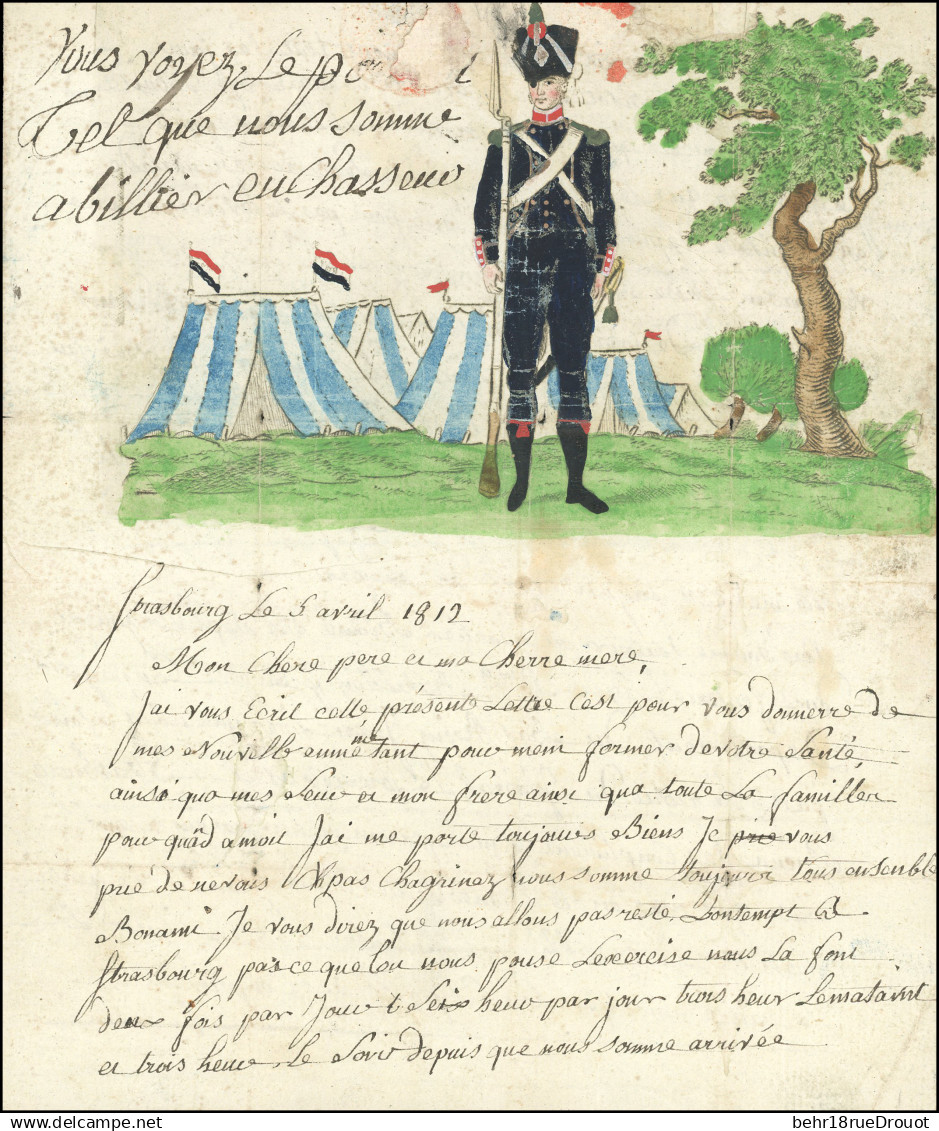 Vous voyez Le
Tel que nous somme
abillier en Chasseur
Strasbourg Le 5 avril 1812
Mon Chere pere et ma Cherre mere,
Jai vous Ecrit cette présente Lettre C'est pour vous donnerre de
mes Nouvelle enmême tant pour mein former devotre Santé,
ainsi qua mes Seur et mon frere ainsi qua toute La famillez
pour quand amoit Jai me porte toujours Biens Je prie vous
prié de nevous pas Chagrinez nous somme toujours tous ensenble
Bonami Je vous direz que nous allons pas resté Lontempt a
Strasbourg pasce que lon nous pouse Lexercise nous La font
deux fois par Jour Seix heur par jour trois heur Lematairt
et trois heur le Soir depuis que nous somme arrivée
behr18rueDrouot